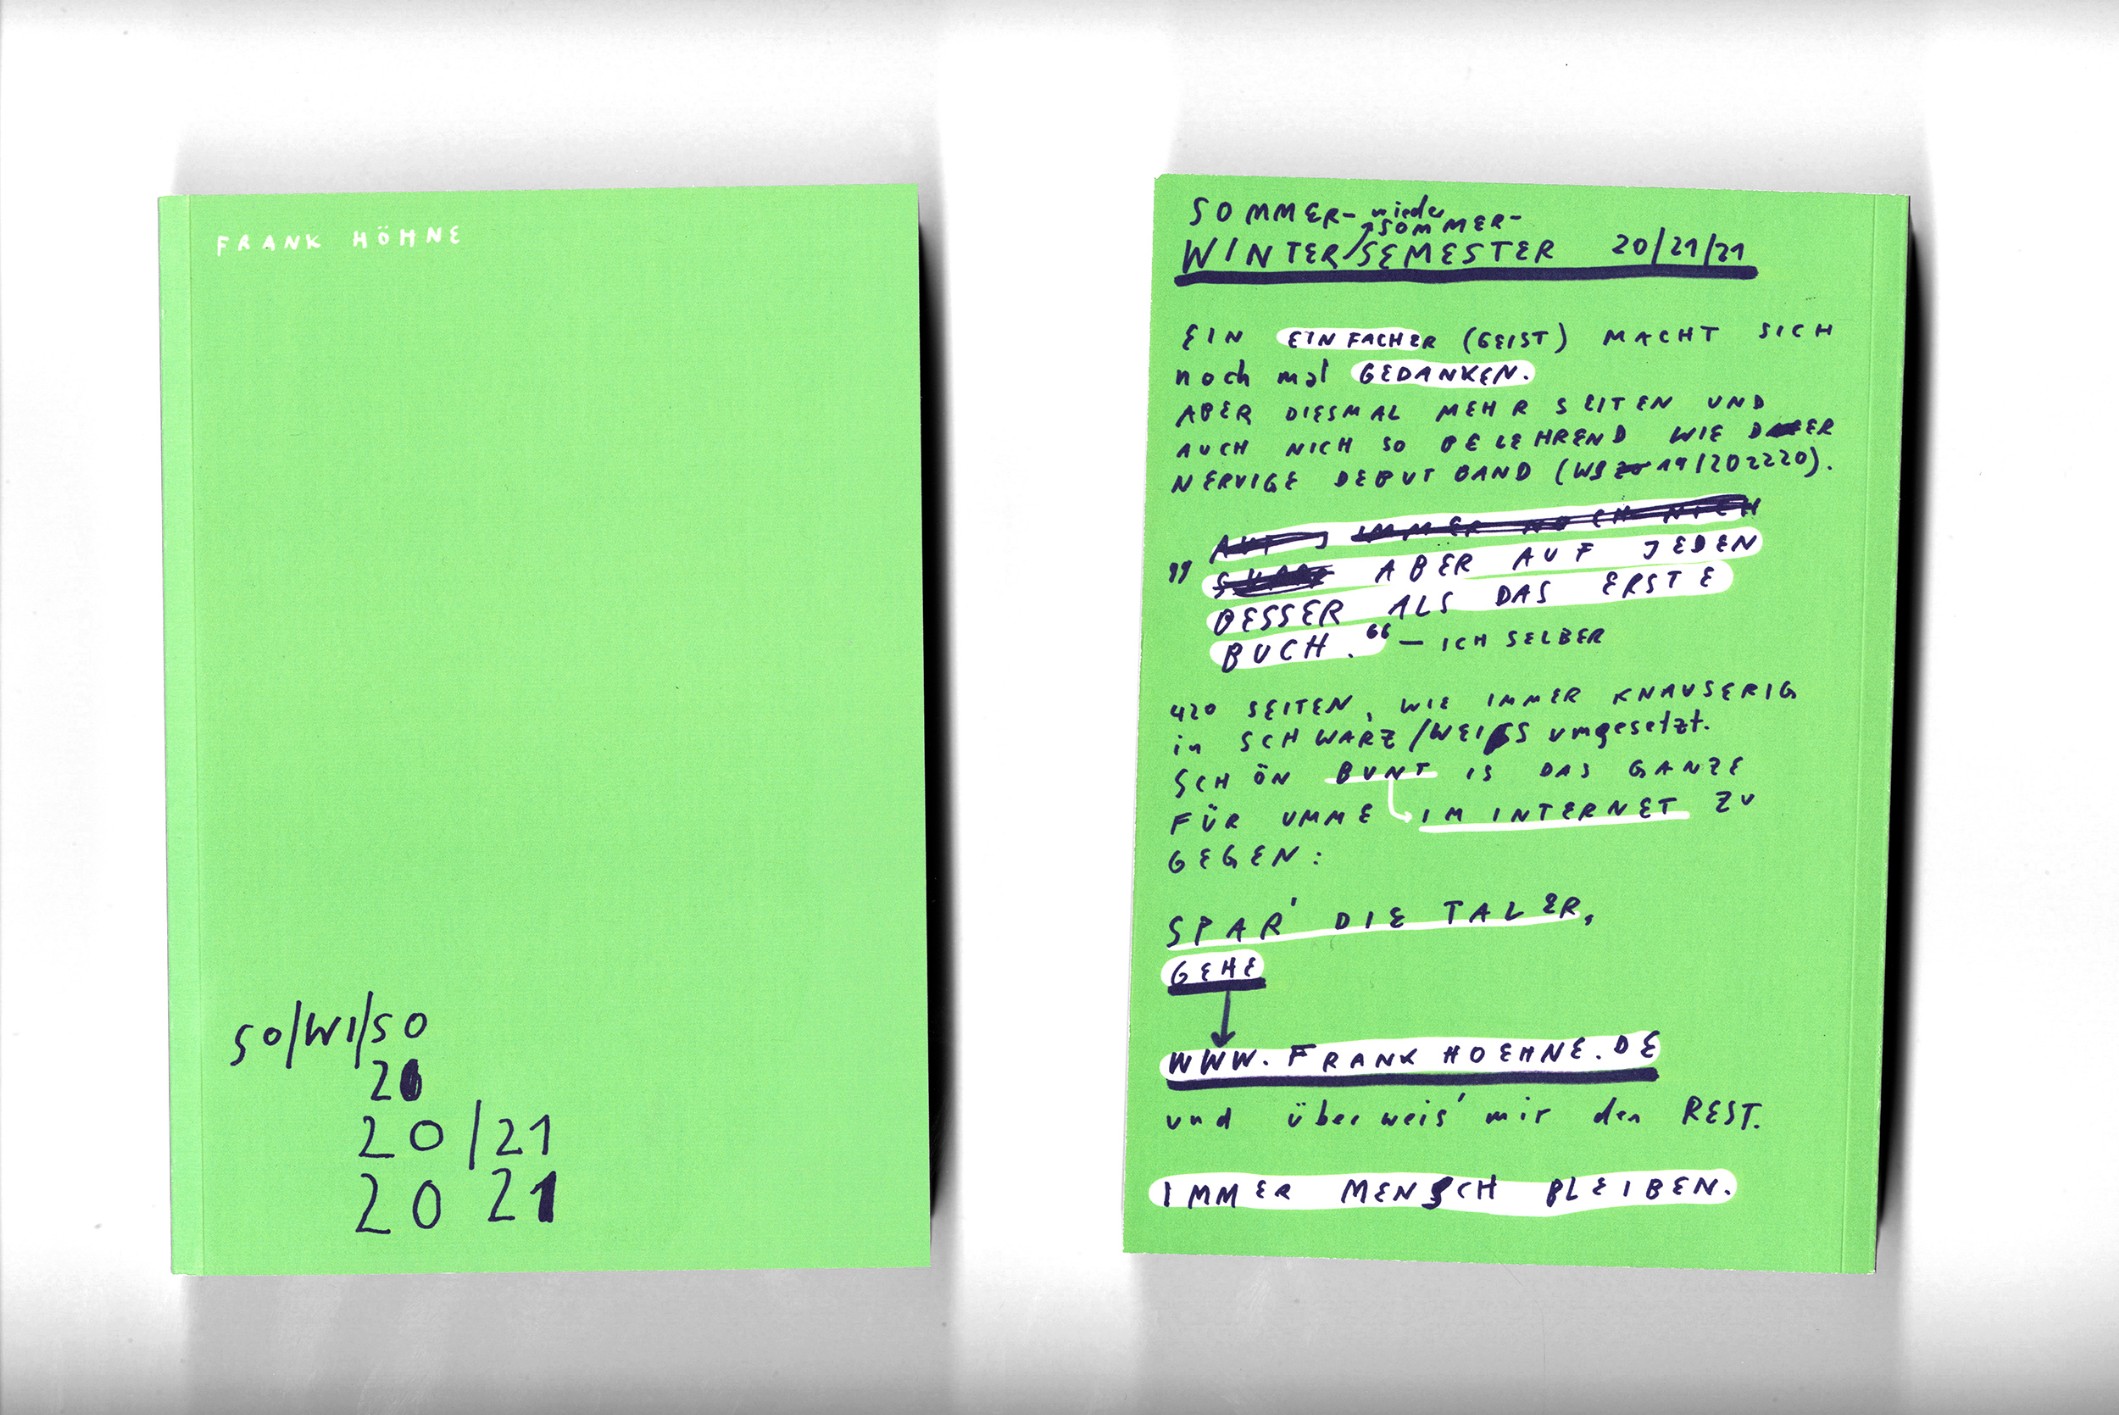 FRANK HÖHNE
SO/WI/SO
20
20/21
20 21
SOMMER- wieder
SOMMER-
WINTER/SEMESTER 20/21/21
EIN EINFACHER (GEIST) MACHT SICH
noch mal GEDANKEN.
ABER DIESMAL MEHR SEITEN UND
AUCH NICH SO BELEHREND WIE DER
NERVIGE DEBUT BAND (WS 19/202220).
AUF IMMER NOCH NICH
„ ABER AUF JEDEN
BESSER ALS DAS ERSTE
BUCH.“ — ICH SELBER
420 SEITEN, WIE IMMER KNAUSERIG
in SCHWARZ/WEISS umgesetzt.
SCHÖN BUNT IS DAS GANZE
FÜR UMME IM INTERNET ZU
GEGEN:
SPAR' DIE TALER,
GEHE
WWW.FRANKHOEHNE.DE
und überweis' mir den REST.
IMMER MENSCH BLEIBEN.